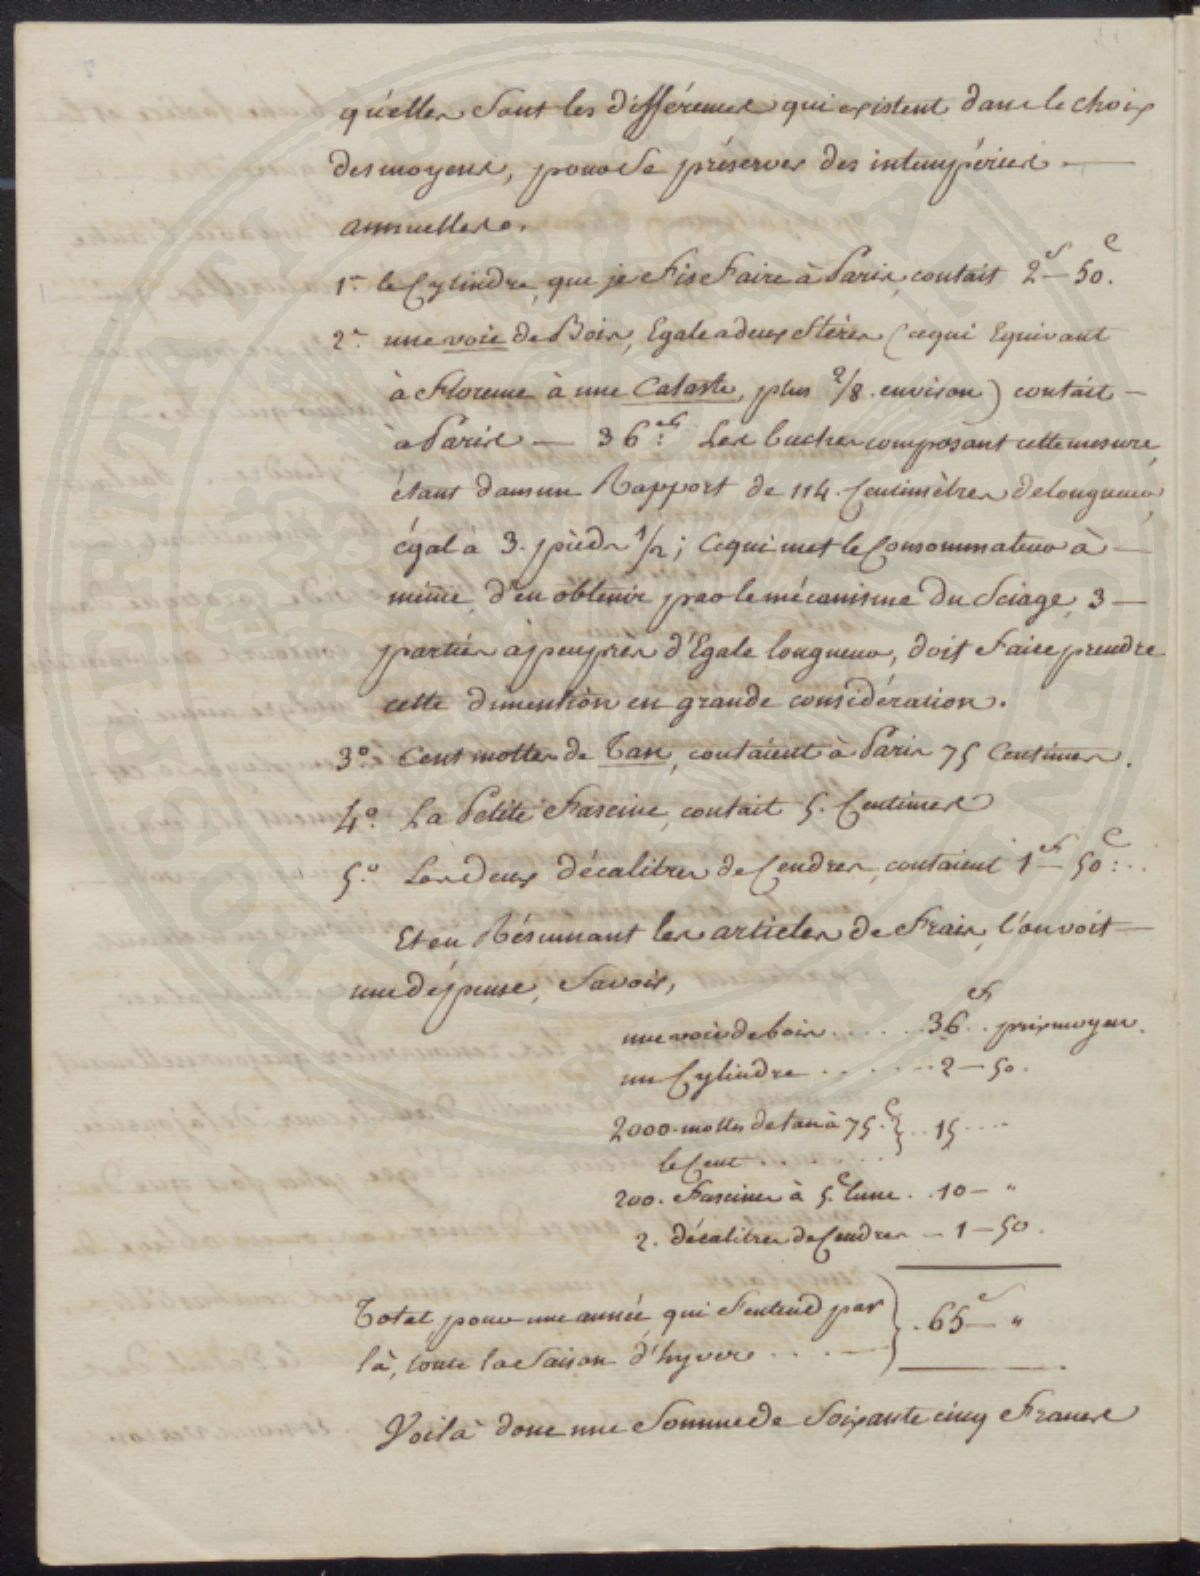 qu'elles sont les différences qui existent dans le choix
des moyens, pour se préserver des intempéries —
annuelles.
1.° le Cylindre, que je fis Faire à Paris, contait 2f — 50c.
2.° une voie de Bois, Egale a deux Stères (cequi Equivaut
à Florence à une Cataste, plus 2/8. environ) contait —
à Paris — 36 fs: Les buches composant cette mesure,
étant dans un Rapport de 114. Centimètres de longueur,
égal à 3. pieds 1/2; Cequi met le Consommateur à —
même, d'en obtenir par le mécanisme du Sciage, 3 —
parties àpeuprès d'Egale longueur, doit Faire prendre
cette dimention en grande considération.
3.° Cent mottes de Tan, contaient à Paris 75 Centimes.
4.° La Petite Fascine, contait 5. Centimes
5.° Les deux décalitres de Cendres, contaient 1f — 50c:..
Et en Résumant les articles de Frais, l'on voit —
une dépense, Savoir,
une voie de bois ...... 36f.. prix moyen.
un Cylindre ...... 2 — 50.
2000. mottes de tan à 75.c } .. 15 ....
le Cent ......
200. Fascines à 5.c l'une .. 10 — "
2. décalitres de Cendres — 1 — 50.
Total pour une année, qui S'entend par } . 65f — "
là, toute la Saison d'hyver ....
Voilà donc une Somme de Soixante cinq Francs